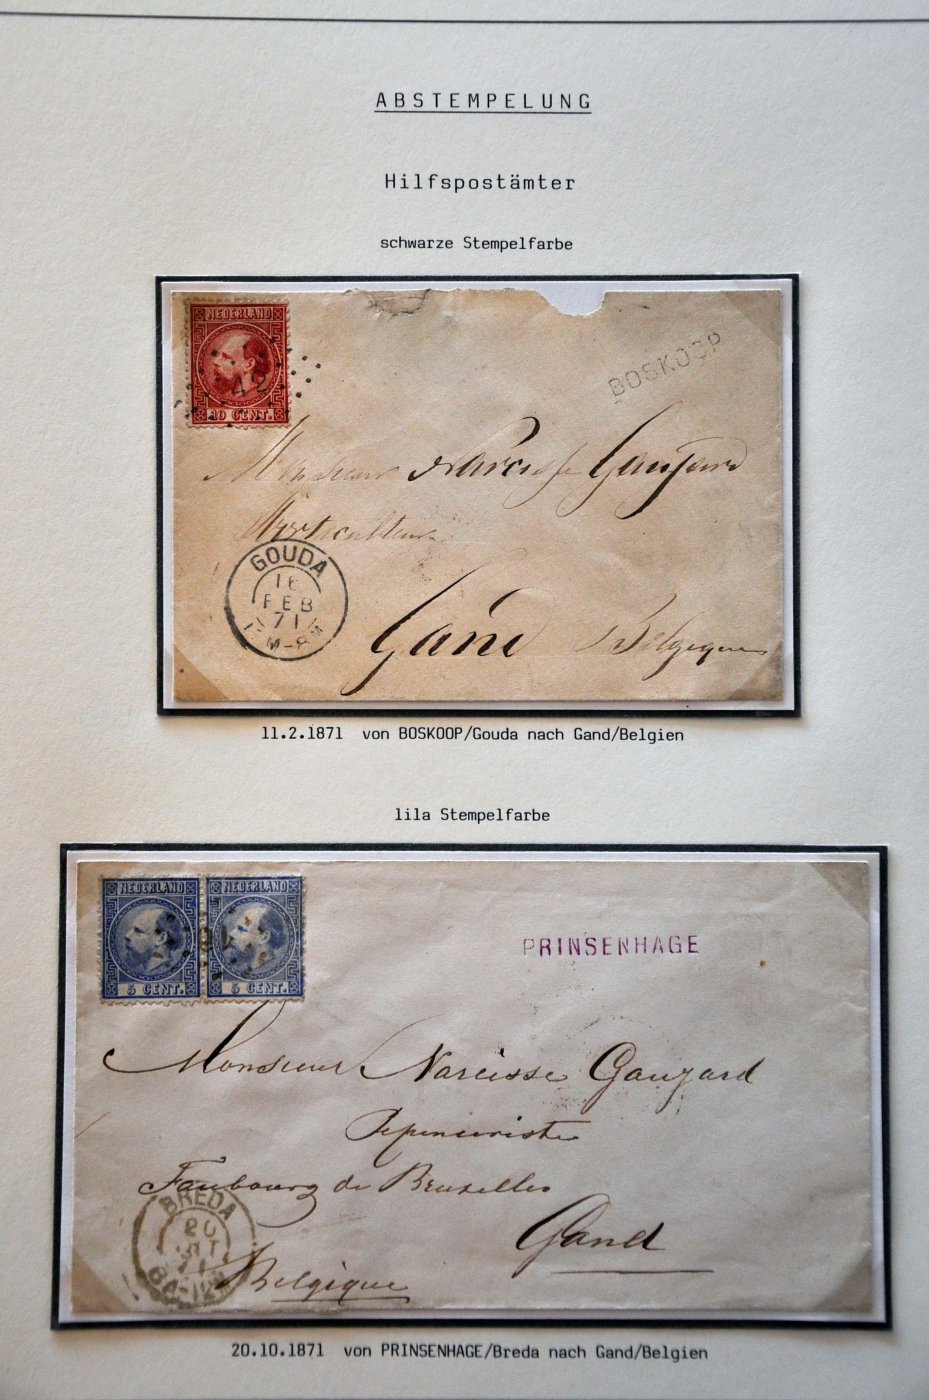 ABSTEMPELUNG
Hilfspostämter
schwarze Stempelfarbe
NEDERLAND
42
10 CENT.
BOSKOOP
Monsieur Narcisse Gaujard
GOUDA
16
FEB
71
Gand Belgique
11.2.1871 von BOSKOOP/Gouda nach Gand/Belgien
lila Stempelfarbe
NEDERLAND NEDERLAND
5 CENT. 5 CENT.
PRINSENHAGE
Monsieur Narcisse Gaujard
Pepinieriste
Faubourg de Bruxelles
BREDA
20
Gand
Belgique
20.10.1871 von PRINSENHAGE/Breda nach Gand/Belgien